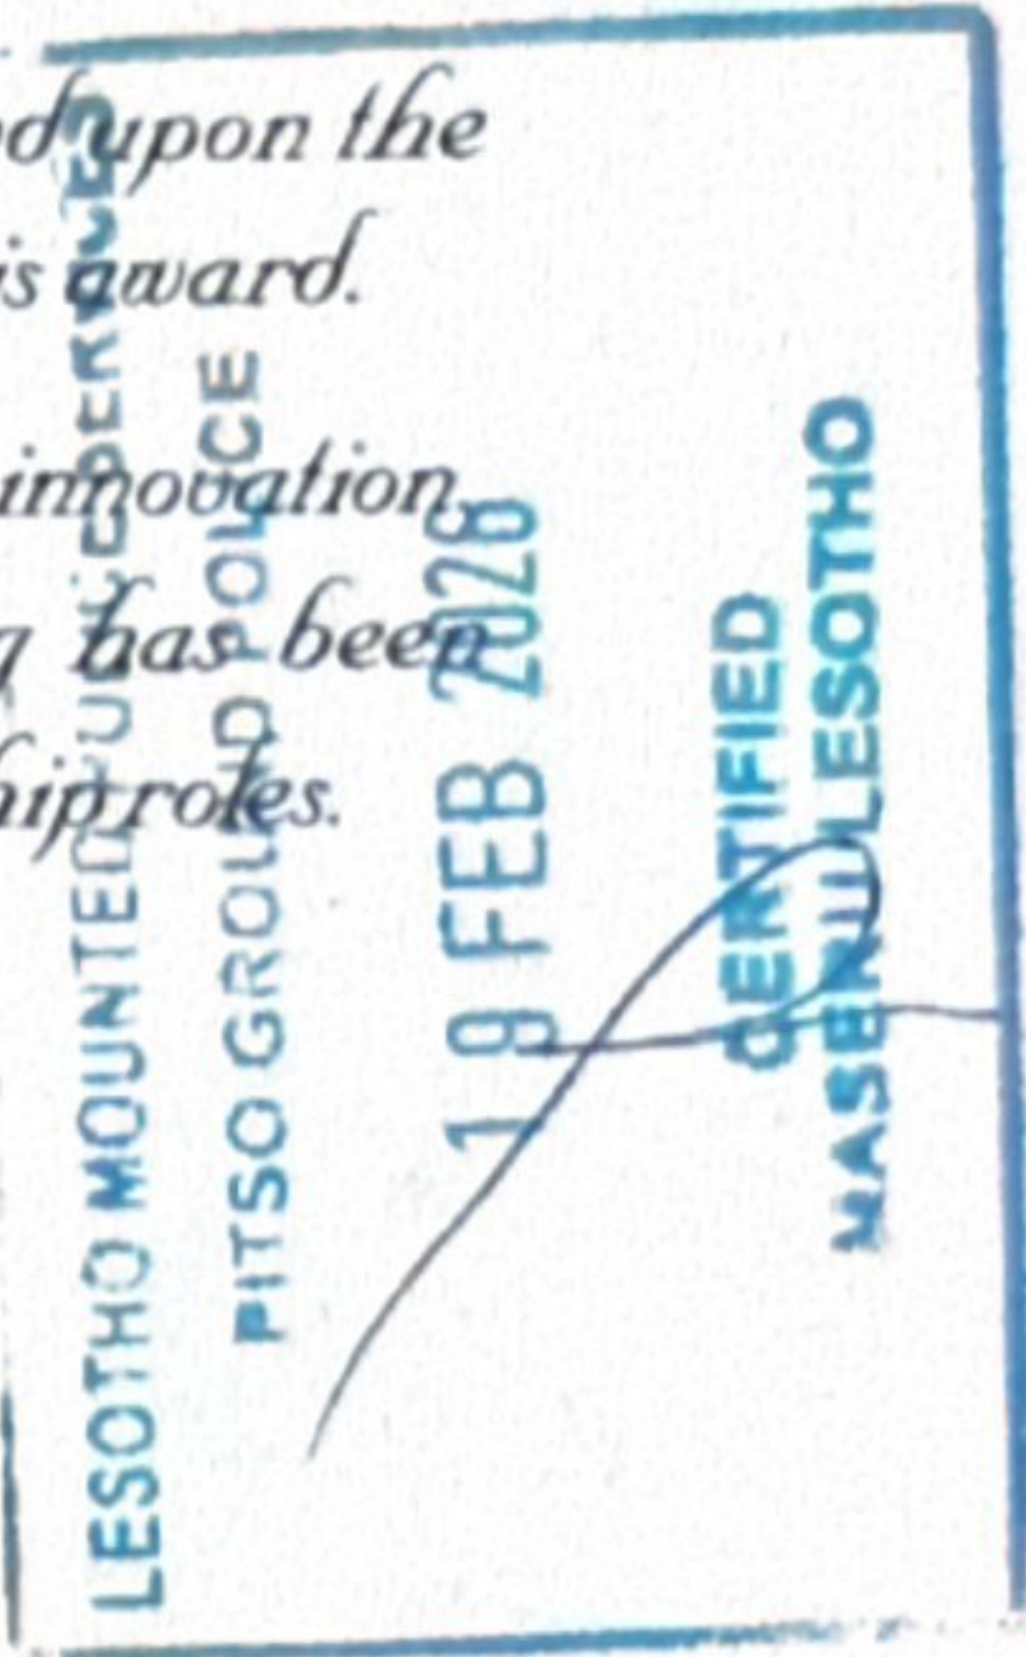 d upon the
is award.
innovation,
has been
hip roles.
LESOTHO MOUNTED POLICE SERVICE
PITSO GROUND POLICE
19 FEB 2026
CERTIFIED
MASERU LESOTHO